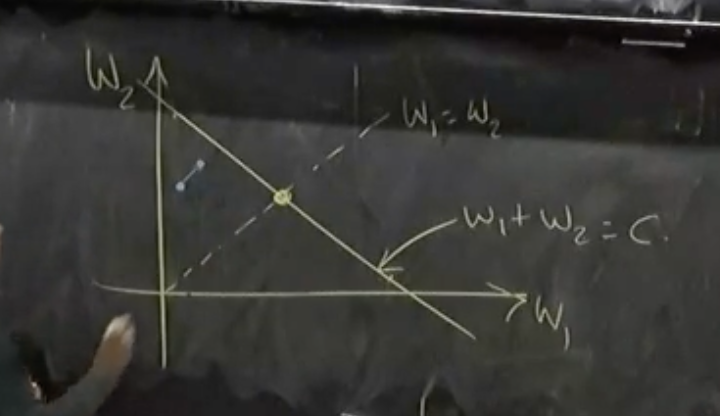 W₂
W₁ = W₂
W₁ + W₂ = C.
W₁